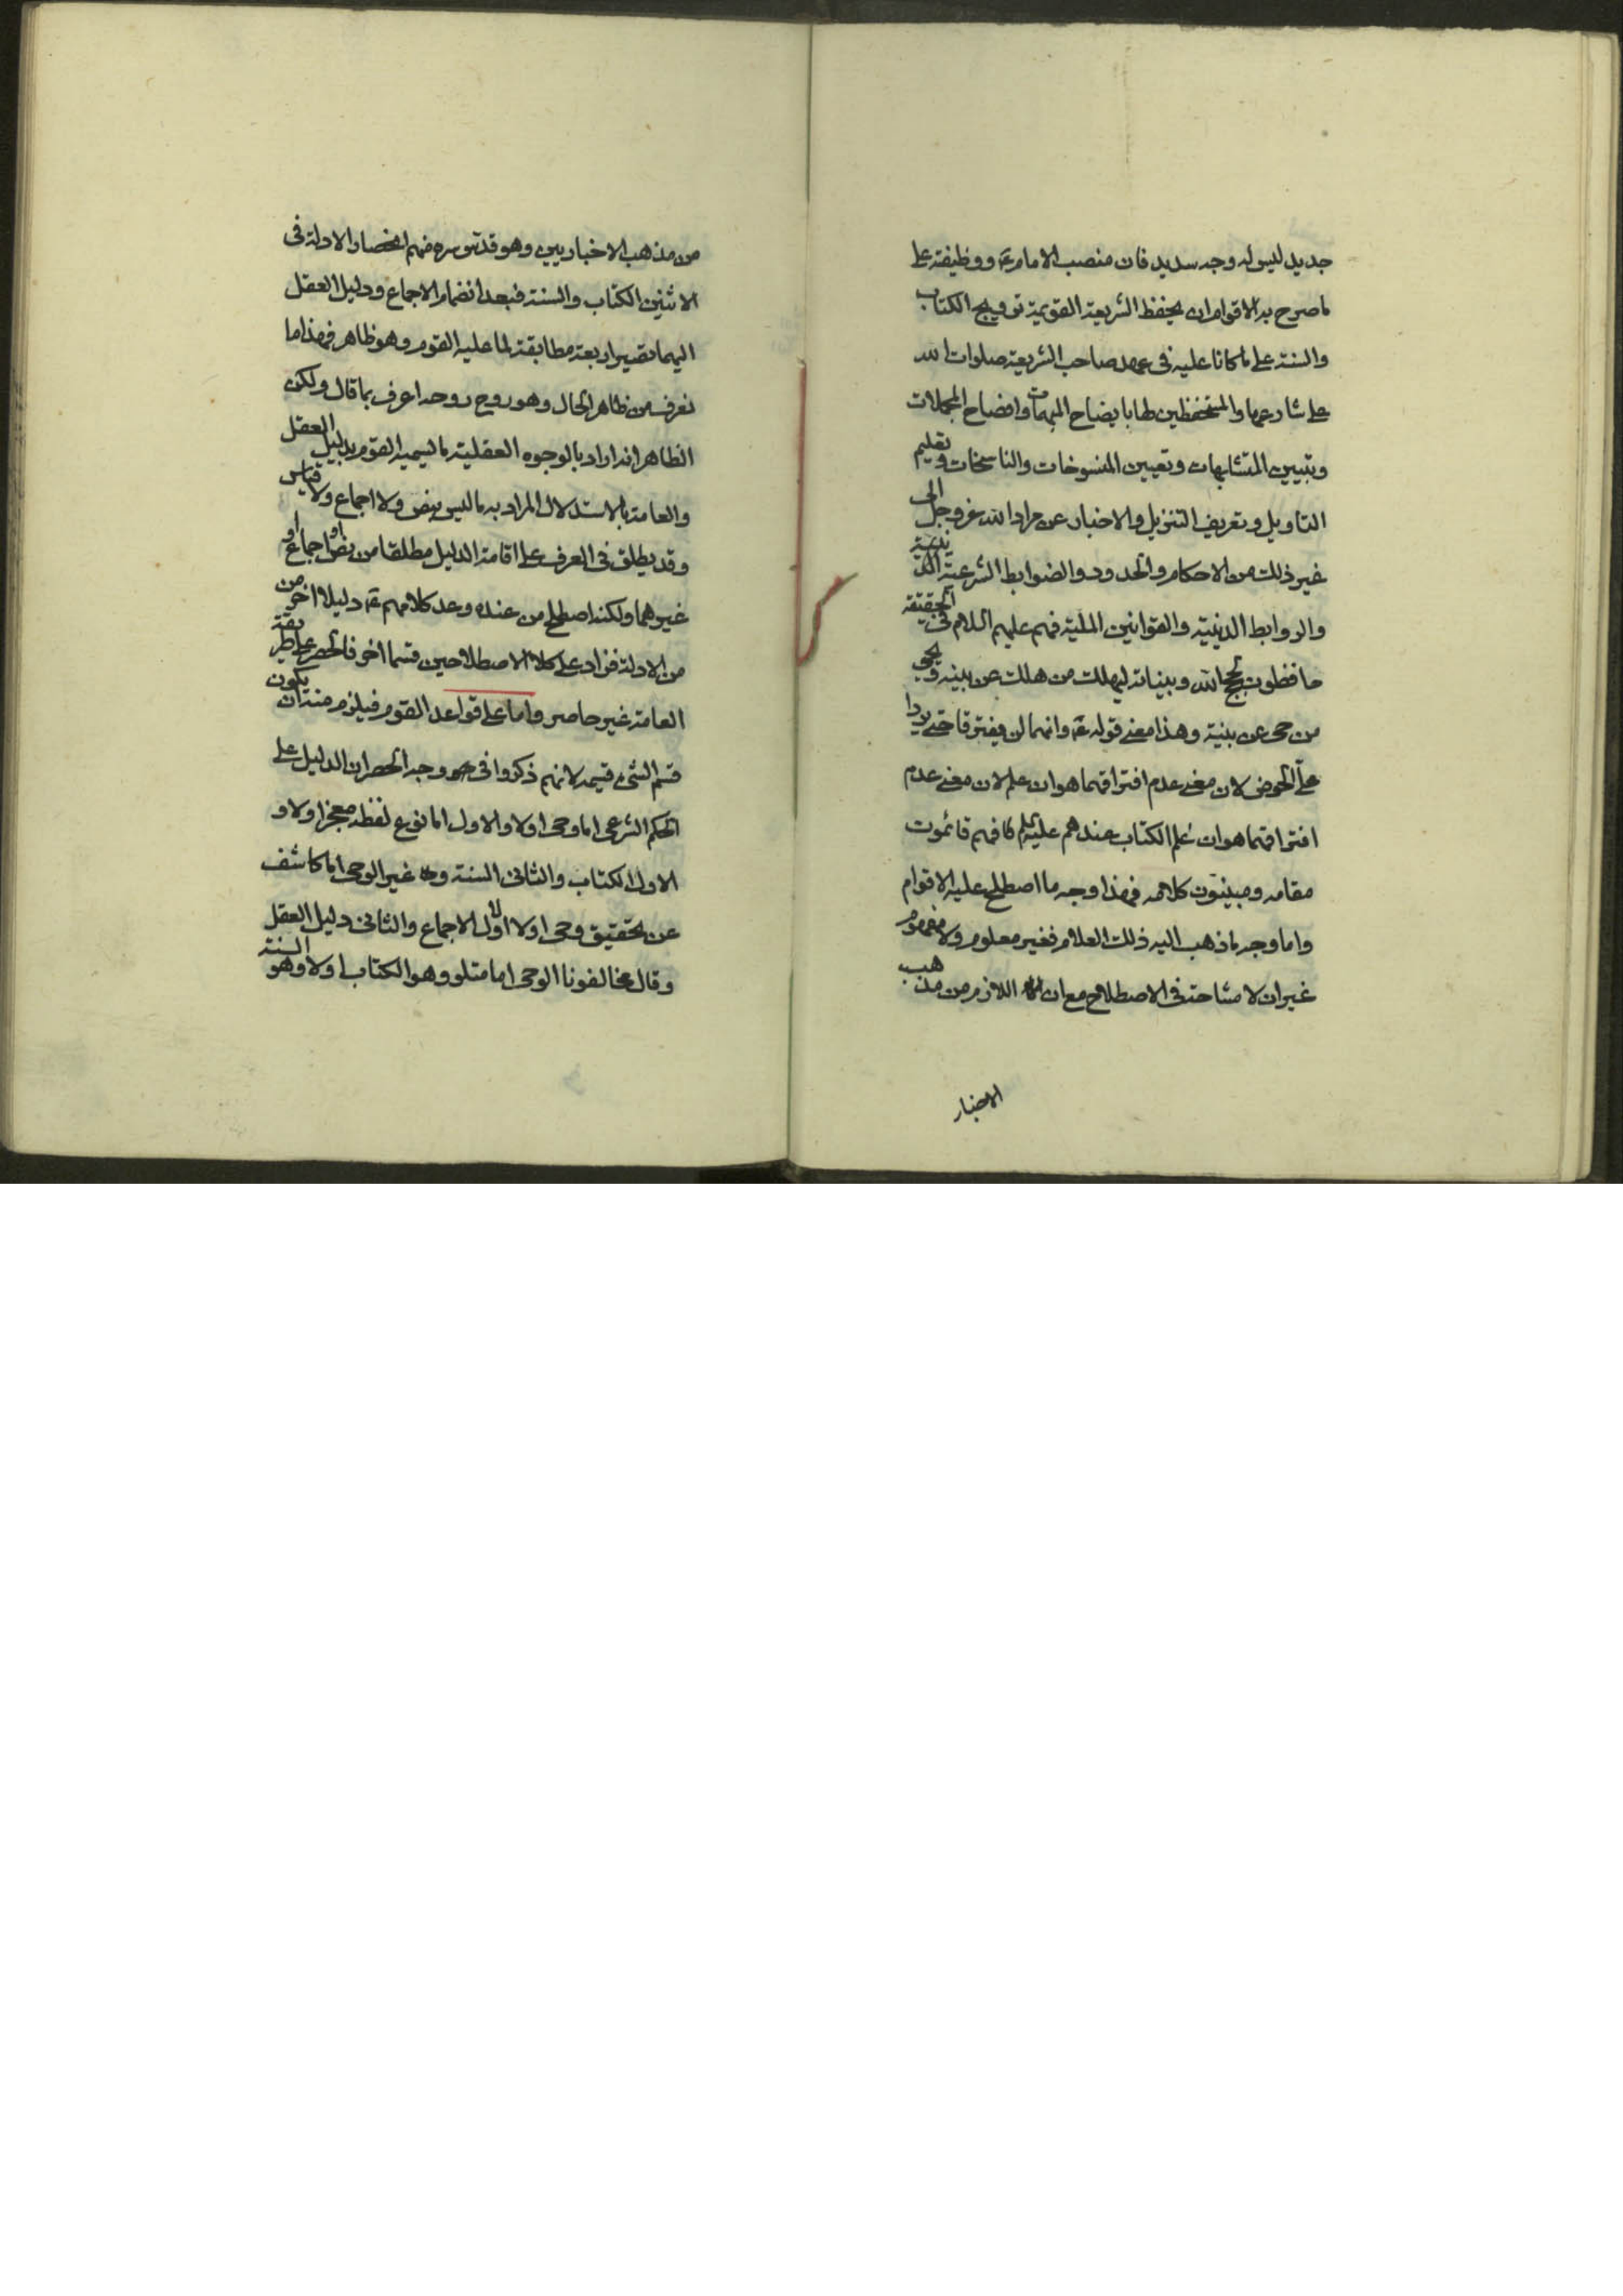 جديد ليس له وجه سديد فان منصب الامام ع ووظيفته على
ما صرح به الاقوام ان يحفظ الشريعة القويمة ترويج الكتاب
والسنة على ما كانا عليه فى عهد صاحب الشريعة صلوات الله
على شارعها والمستحفظين لها بايضاح المبهمات وافصاح المجملات
وتبيين المتشابهات وتعيين المنسوخات والناسخات وتعليم
التاويل وتعريف التنزيل والاخبار عن مراد الله عز وجل الى
غير ذلك من الاحكام والحدود والضوابط الشرعية الدينية
والروابط الدينية والقوانين الملية فهم عليهم السلام فى الحقيقة
حافظون لحجج الله وبيناته ليهلك من هلك عن بينة ويحيى
من حى عن بينة وهذا معنى قوله ع وانهما لن يفترقا حتى يردا
على الحوض لان معنى عدم افتراقهما هو ان علم لان معنى عدم
افتراقهما هو ان علم الكتاب عندهم عليهم كافهم قائمون
مقامه ومبينون كلامه فهذا وجه ما اصطلح عليه الاقوام
واما وجه ما ذهب اليه ذلك العلام فغير معلوم ولا مفهوم
غير ان لا مشاحة فى الاصطلاح مع ان اللازم من مذهب
الاخبار
من مذهب الاخباريين وهو قدس سره منهم انحصار الادلة فى
الاثنين الكتاب والسنة فبعد انضمام الاجماع ودليل العقل
اليهما تصير اربعة مطابقة لما عليه القوم وهو ظاهر فهذا ما
نعرف من ظاهر الحال وهو روح روحه اعرف بما قال ولكن
الظاهر انه اراد بالوجوه العقلية ما يسميه القوم بدليل العقل
والعامة بالاستدلال المراد به ما ليس بنص ولا اجماع ولا قياس
وقد يطلق فى العرف على اقامة الدليل مطلقا من نص او اجماع او
غيرهما ولكنه اصطلح من عنده وعد كلامهم ع دليلا اخر من
من الادلة فزاد على كلا الاصطلاحين قسما اخر فالحصر على طريقة
العامة غير حاصر واما على قواعد القوم فيلزم منه ان يكون
قسم الشىء قسيمه لانهم ذكروا فى وجه الحصر ان الدليل على
الحكم الشرعى اما وحى اولا والاول اما نوع لفظه معجز اولا و
الاول الكتاب والثانى السنة وغير الوحى اما كاشف
عن تحقيق وحى اولا الاول الاجماع والثانى دليل العقل
وقال مخالفونا الوحى اما متلو وهو الكتاب اولا وهو السنة